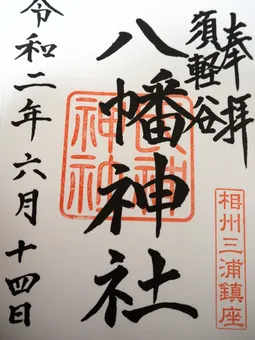 奉拝
須軽谷
八幡神社
相州三浦鎮座
令和二年六月十四日